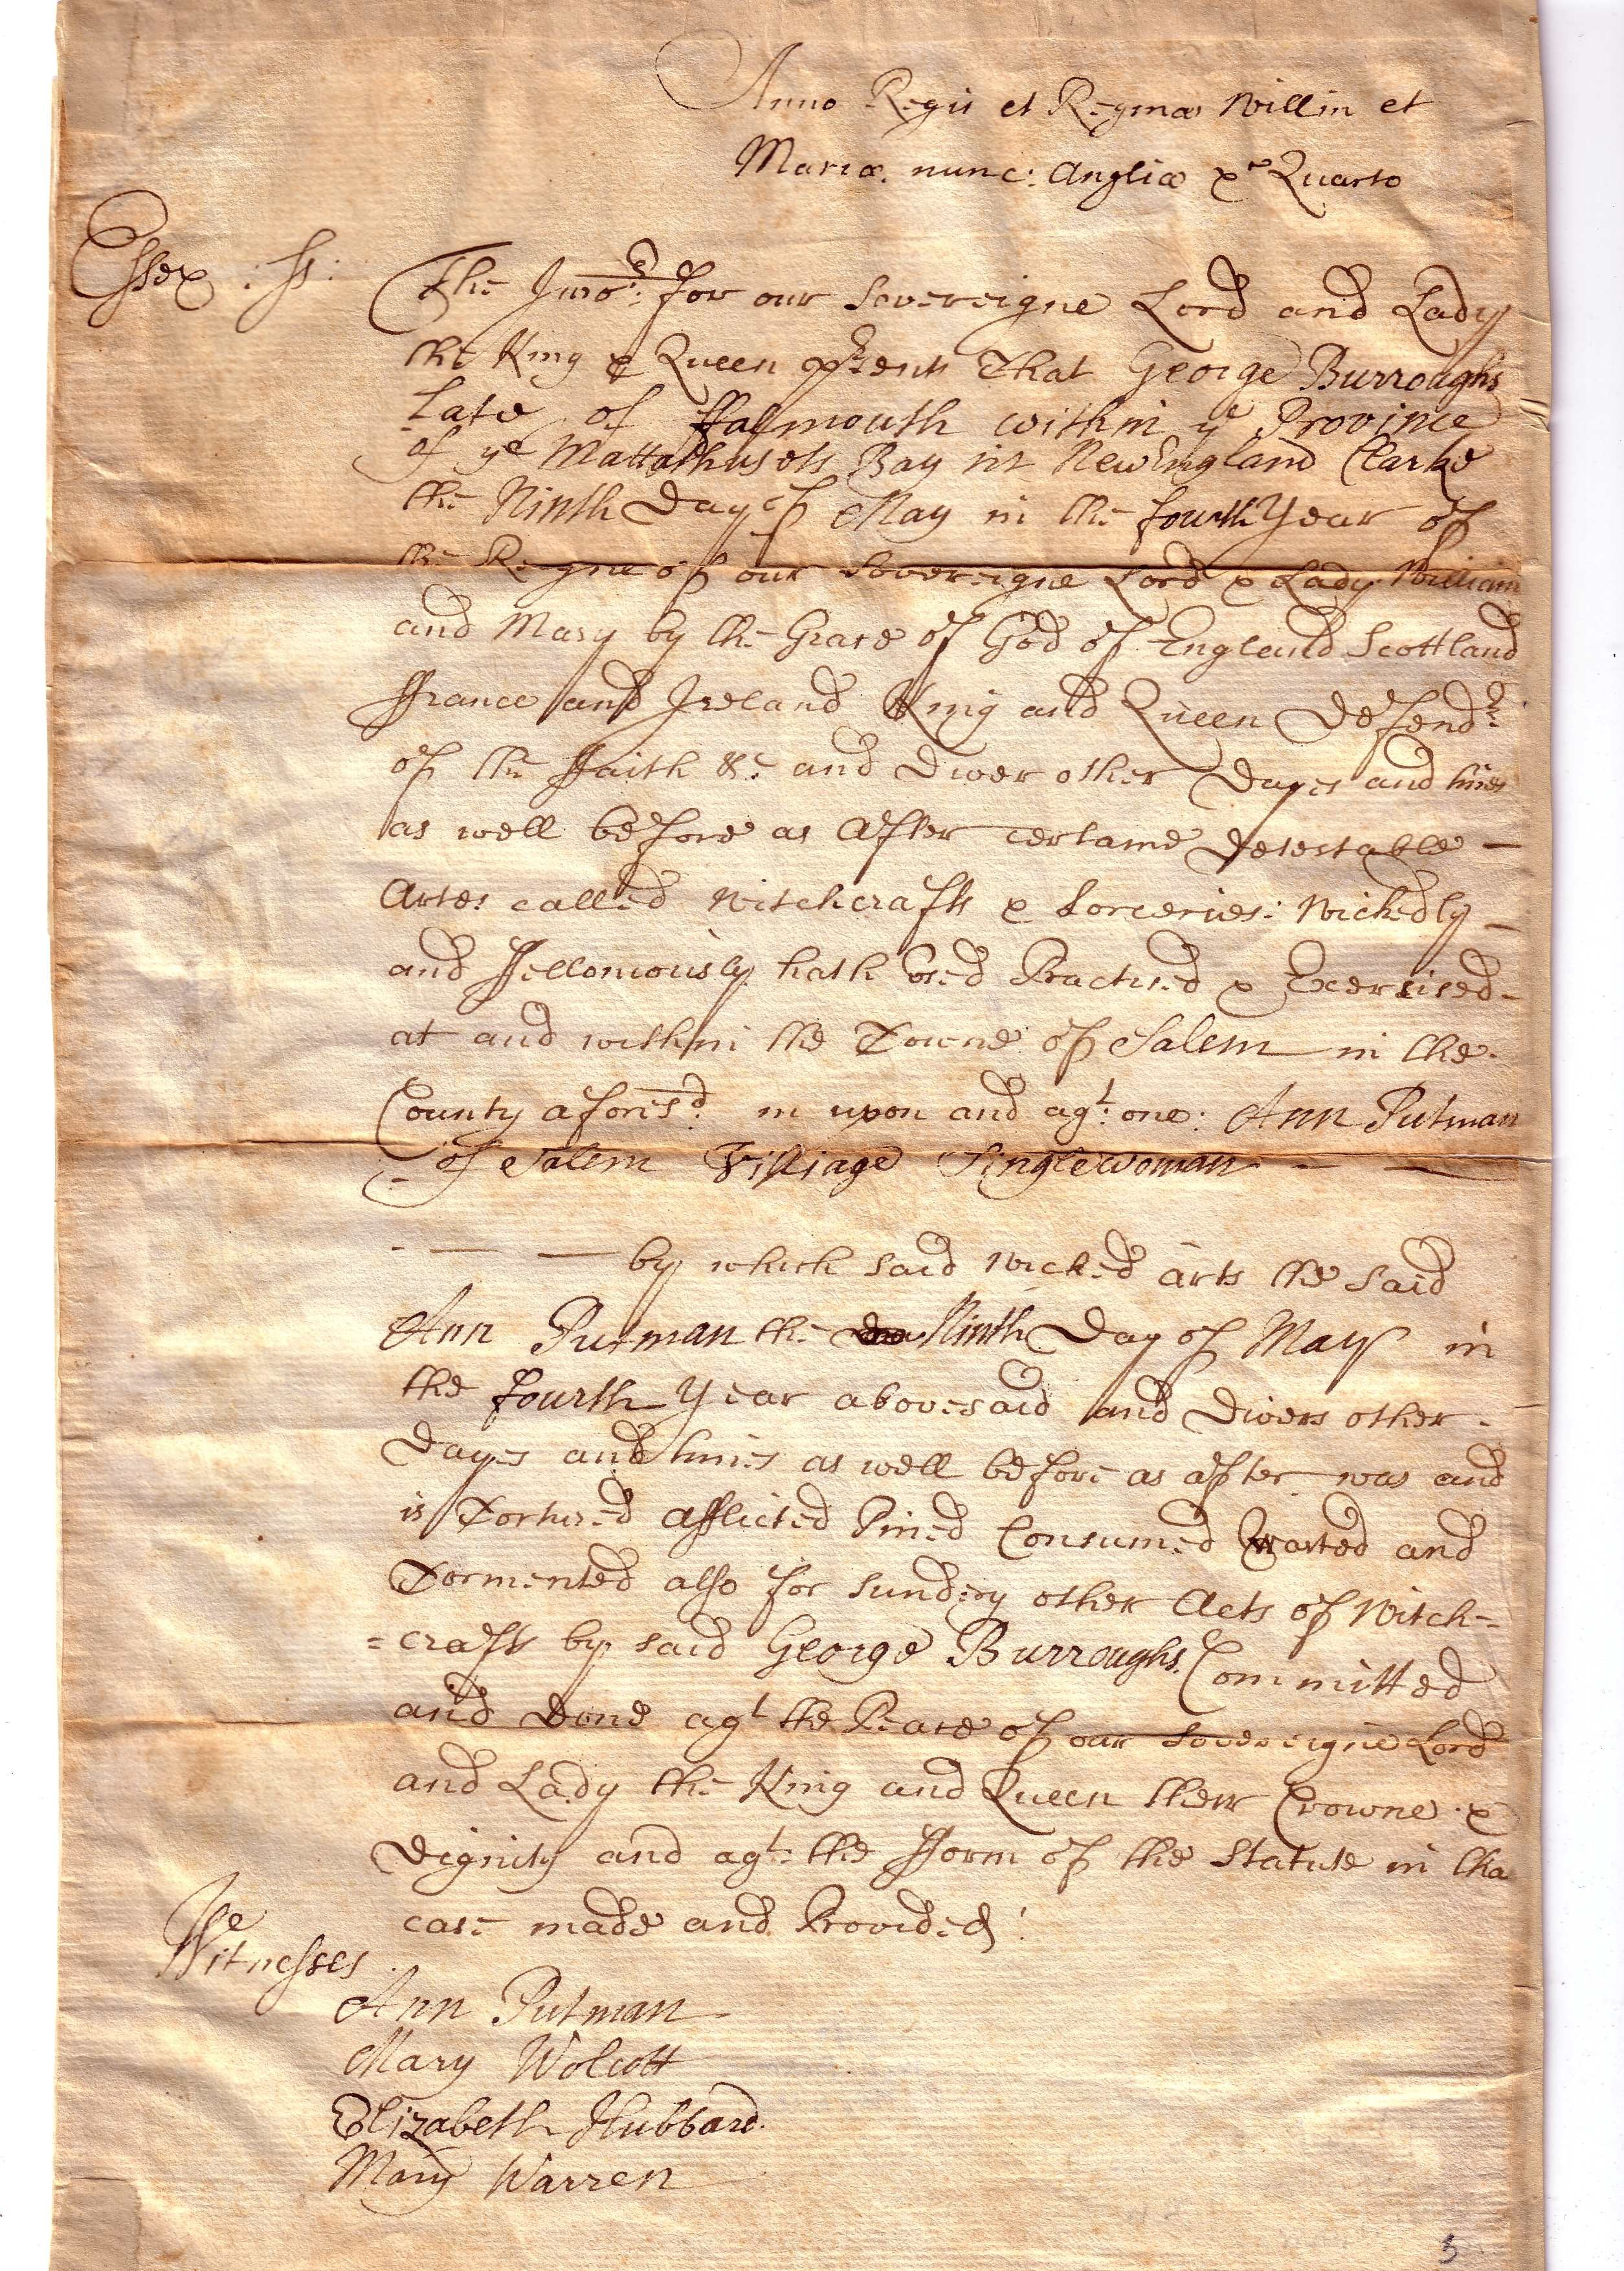 Anno Regis et Reginæ Willm et
Mariæ. nunc: Angliæ &c Quarto
Essex : ss:
The Juro.rs for our Sovereigne Lord and Lady
the King & Queen prsents That George Burroughs
late of ffalmouth within ye Province
of ye Mattathusets Bay in New England Clarke
the Ninth Day of May in the fourth Year of
the Reigne of our Sovereigne Lord & Lady William
and Mary by the Grace of God of England Scottland
ffrance and Ireland King and Queen Defendrs
of the ffaith &c and Divers other Dayes and times
as well before as after certaine Detestable —
Artes called Witchcrafts & Sorceries: Wickedly —
and ffelloniously hath Used Practised & Exercised -
at and within the Towne of Salem in the
County aforesd: in upon and agt: one: Ann Putman
- of Salem Villiage Singlewoman — — —
- — — by which said Wicked arts the said
Ann Putman the Ninth Day of May in
the fourth Year abovesaid and Divers other -
Dayes and times as well before as after was and
is Tortured Afflicted Pined Consumed Wasted and
Tormented also for sundery other Acts of Witch-
=crafts by said George Burroughs. Committed
and Done agt the Peace of our Sovereigne Lord
and Lady the King and Queen their Crowne &
Dignity and agt: the fform of the Statute in tha
case made and Provided:
Witnesses
Ann Putman
Mary Wolcott
Elizabeth Hubbard.
Mary Warren
5